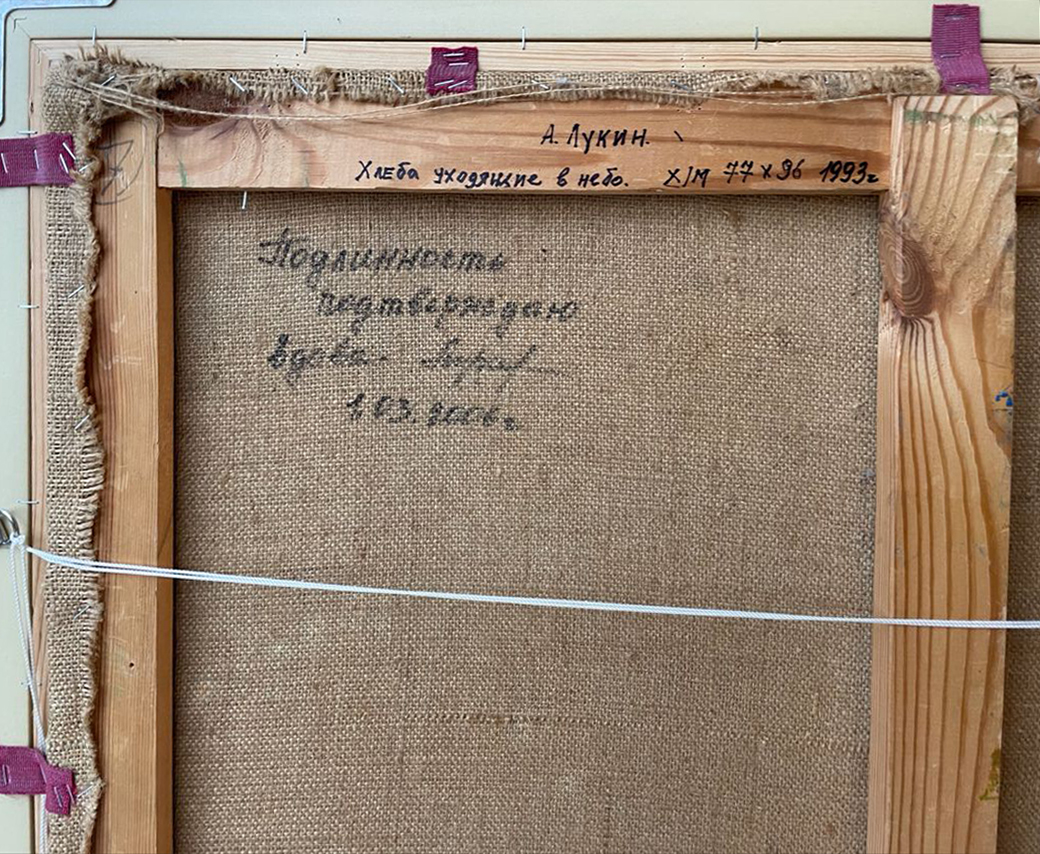 А. Лукин.
Хлеба уходящие в небо. Х/М 77 х 96 1993г
Подлинность
подтверждаю
вдова.
1.03.2006г.